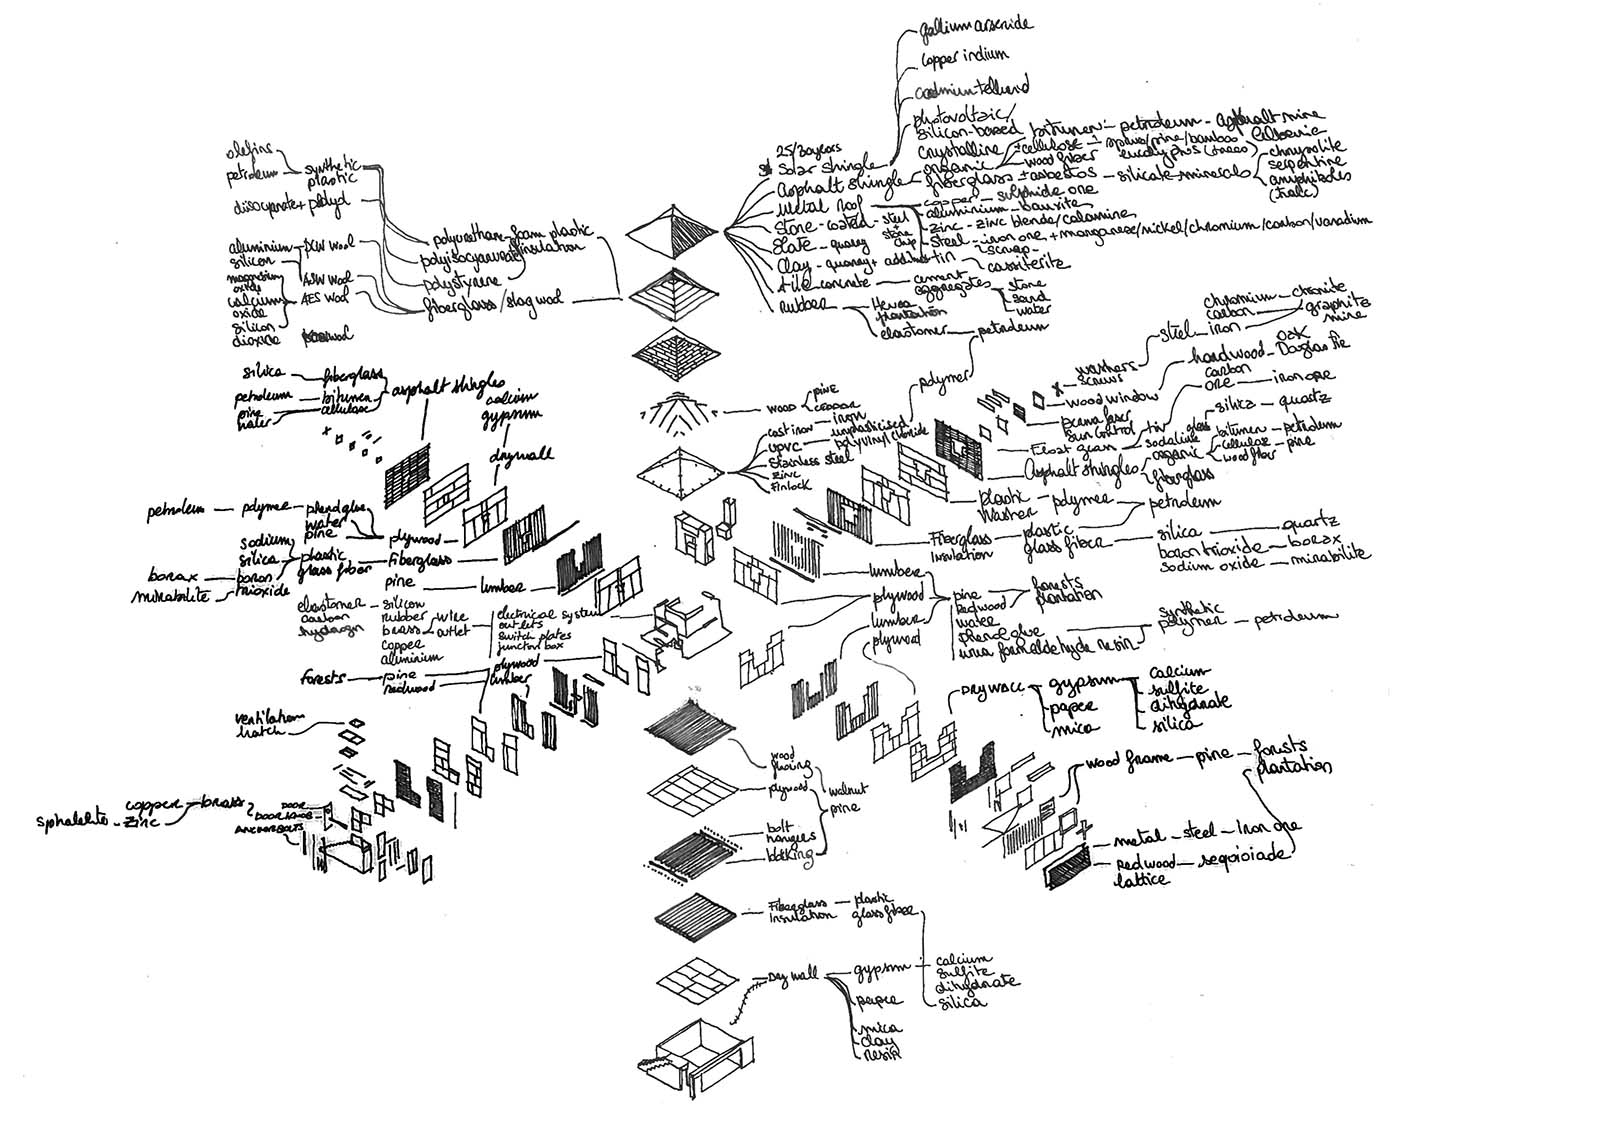 gallium arsenide
copper indium
photovoltaic/
silicon-based
crystalline
bitumen - petroleum - asphalt mine
± cellulose
wood fiber
25/30 years
Solar shingle
Asphalt shingle
organic
fiberglass ± asbestos - silicate minerals
chrysolite
serpentine
amphiboles
Metal Roof
copper - sulphide ore
aluminium - bauxite
zinc - zinc blende/calamine
steel - iron ore + manganese/nickel/chromium/carbon/vanadium
tin
cassiterite
Stone-coated - steel
+
stone
chip
Slate - quarry
Clay - quarry +
tile concrete - cement
aggregates
stone
sand
water
rubber
Hevea
plantation
elastomer - petroleum
polymer
olefins
petroleum
synthetic
plastic
diisocyanate +
aluminium
silicon
magnesium
oxide
calcium
oxide
silicon
dioxide
AES wool
polyurethane - foam plastic
insulation
polystyrene
fiberglass/slag wool
silica - fiberglass
petroleum - bitumen
pine
water
cellulose
asphalt shingles
calcium
gypsum
drywall
petroleum - polymer - phenol glue
water
pine
plywood
sodium
silica
boron
trioxide
borax
mirabilite
plastic
glass fiber
fiberglass
pine
lumber
elastomer
carbon
hydrogen
silicon
rubber
brass
copper
aluminium
wire
outlet
electrical system
outlets
switch plates
junction box
forests - pine
redwood
plywood
lumber
ventilation
hatch
sphalelite - zinc
copper
brass
DOOR
DOOR KNOB
ANCHOR BOLTS
wood
pine
ceddar
cast iron - iron
uPVC
unplasticised
polyvinyl chloride
stainless steel
zinc
Finlock
washers
screws
steel
iron
chromium - chromite
carbon
graphite
mine
wood window
hardwood
oak
Douglas Fir
sun control
tin
ore - iron ore
carbon
glass
sodalime
silica - quartz
Asphalt shingles
organic
fiberglass
bitumen - petroleum
cellulose - pine
wood fiber
plastic
washer
polymer
petroleum
Fiberglass
Insulation
plastic
glass fiber
silica - quartz
boron trioxide - borax
sodium oxide - mirabilite
lumber
plywood
lumber
plywood
pine
Redwood
water
phenol glue
urea formaldehyde resin
forests
plantation
synthetic
polymer - petroleum
DRYWALL
gypsum
paper
mica
calcium
sulfite
dihydrate
silica
wood frame - pine - forests
plantation
metal - steel - Iron ore
Redwood
lattice
seqoioiade
wood
flooring
walnut
plywood
pine
bolt
hangers
blocking
Fiberglass
Insulation
plastic
glass fiber
Dry wall
gypsum
calcium
sulfite
dihydrate
silica
paper
mica
clay
resin